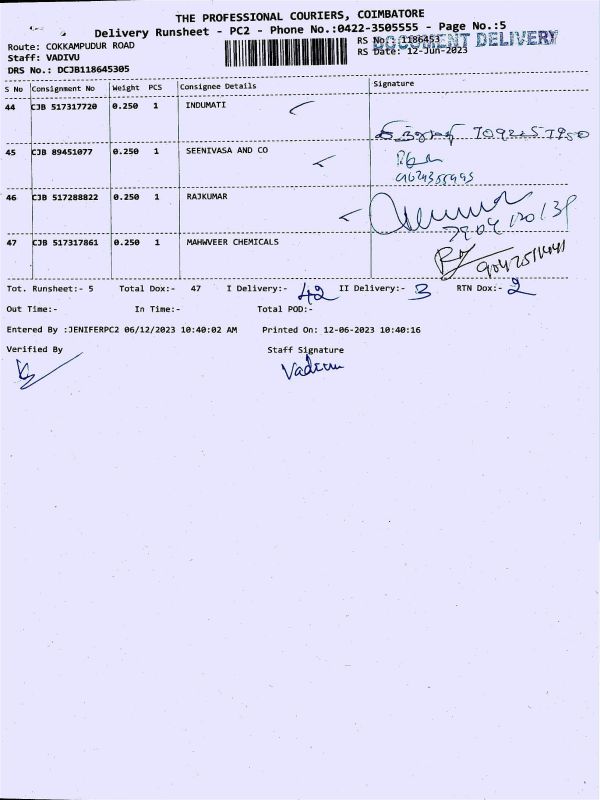 THE PROFESSIONAL COURIERS, COIMBATORE
Delivery Runsheet - PC2 - Phone No.:0422-3505555 - Page No.:5
Route: COKKAMPUDUR ROAD
RS No: 1186453
DOCUMENT DELIVERY
Staff: VADIVU
RS Date: 12-Jun-2023
DRS No.: DCJB118645305
S No Consignment No Weight PCS Consignee Details Signature
44 CJB 517317720 0.250 1 INDUMATI
45 CJB 89451077 0.250 1 SEENIVASA AND CO
46 CJB 517288822 0.250 1 RAJKUMAR
47 CJB 517317861 0.250 1 MAHWEER CHEMICALS
Tot. Runsheet:- 5 Total Dox:- 47 I Delivery:- 42 II Delivery:- 3 RTN Dox:- 2
Out Time:- In Time:- Total POD:-
Entered By :JENIFERPC2 06/12/2023 10:40:02 AM Printed On: 12-06-2023 10:40:16
Verified By Staff Signature
Vadivu